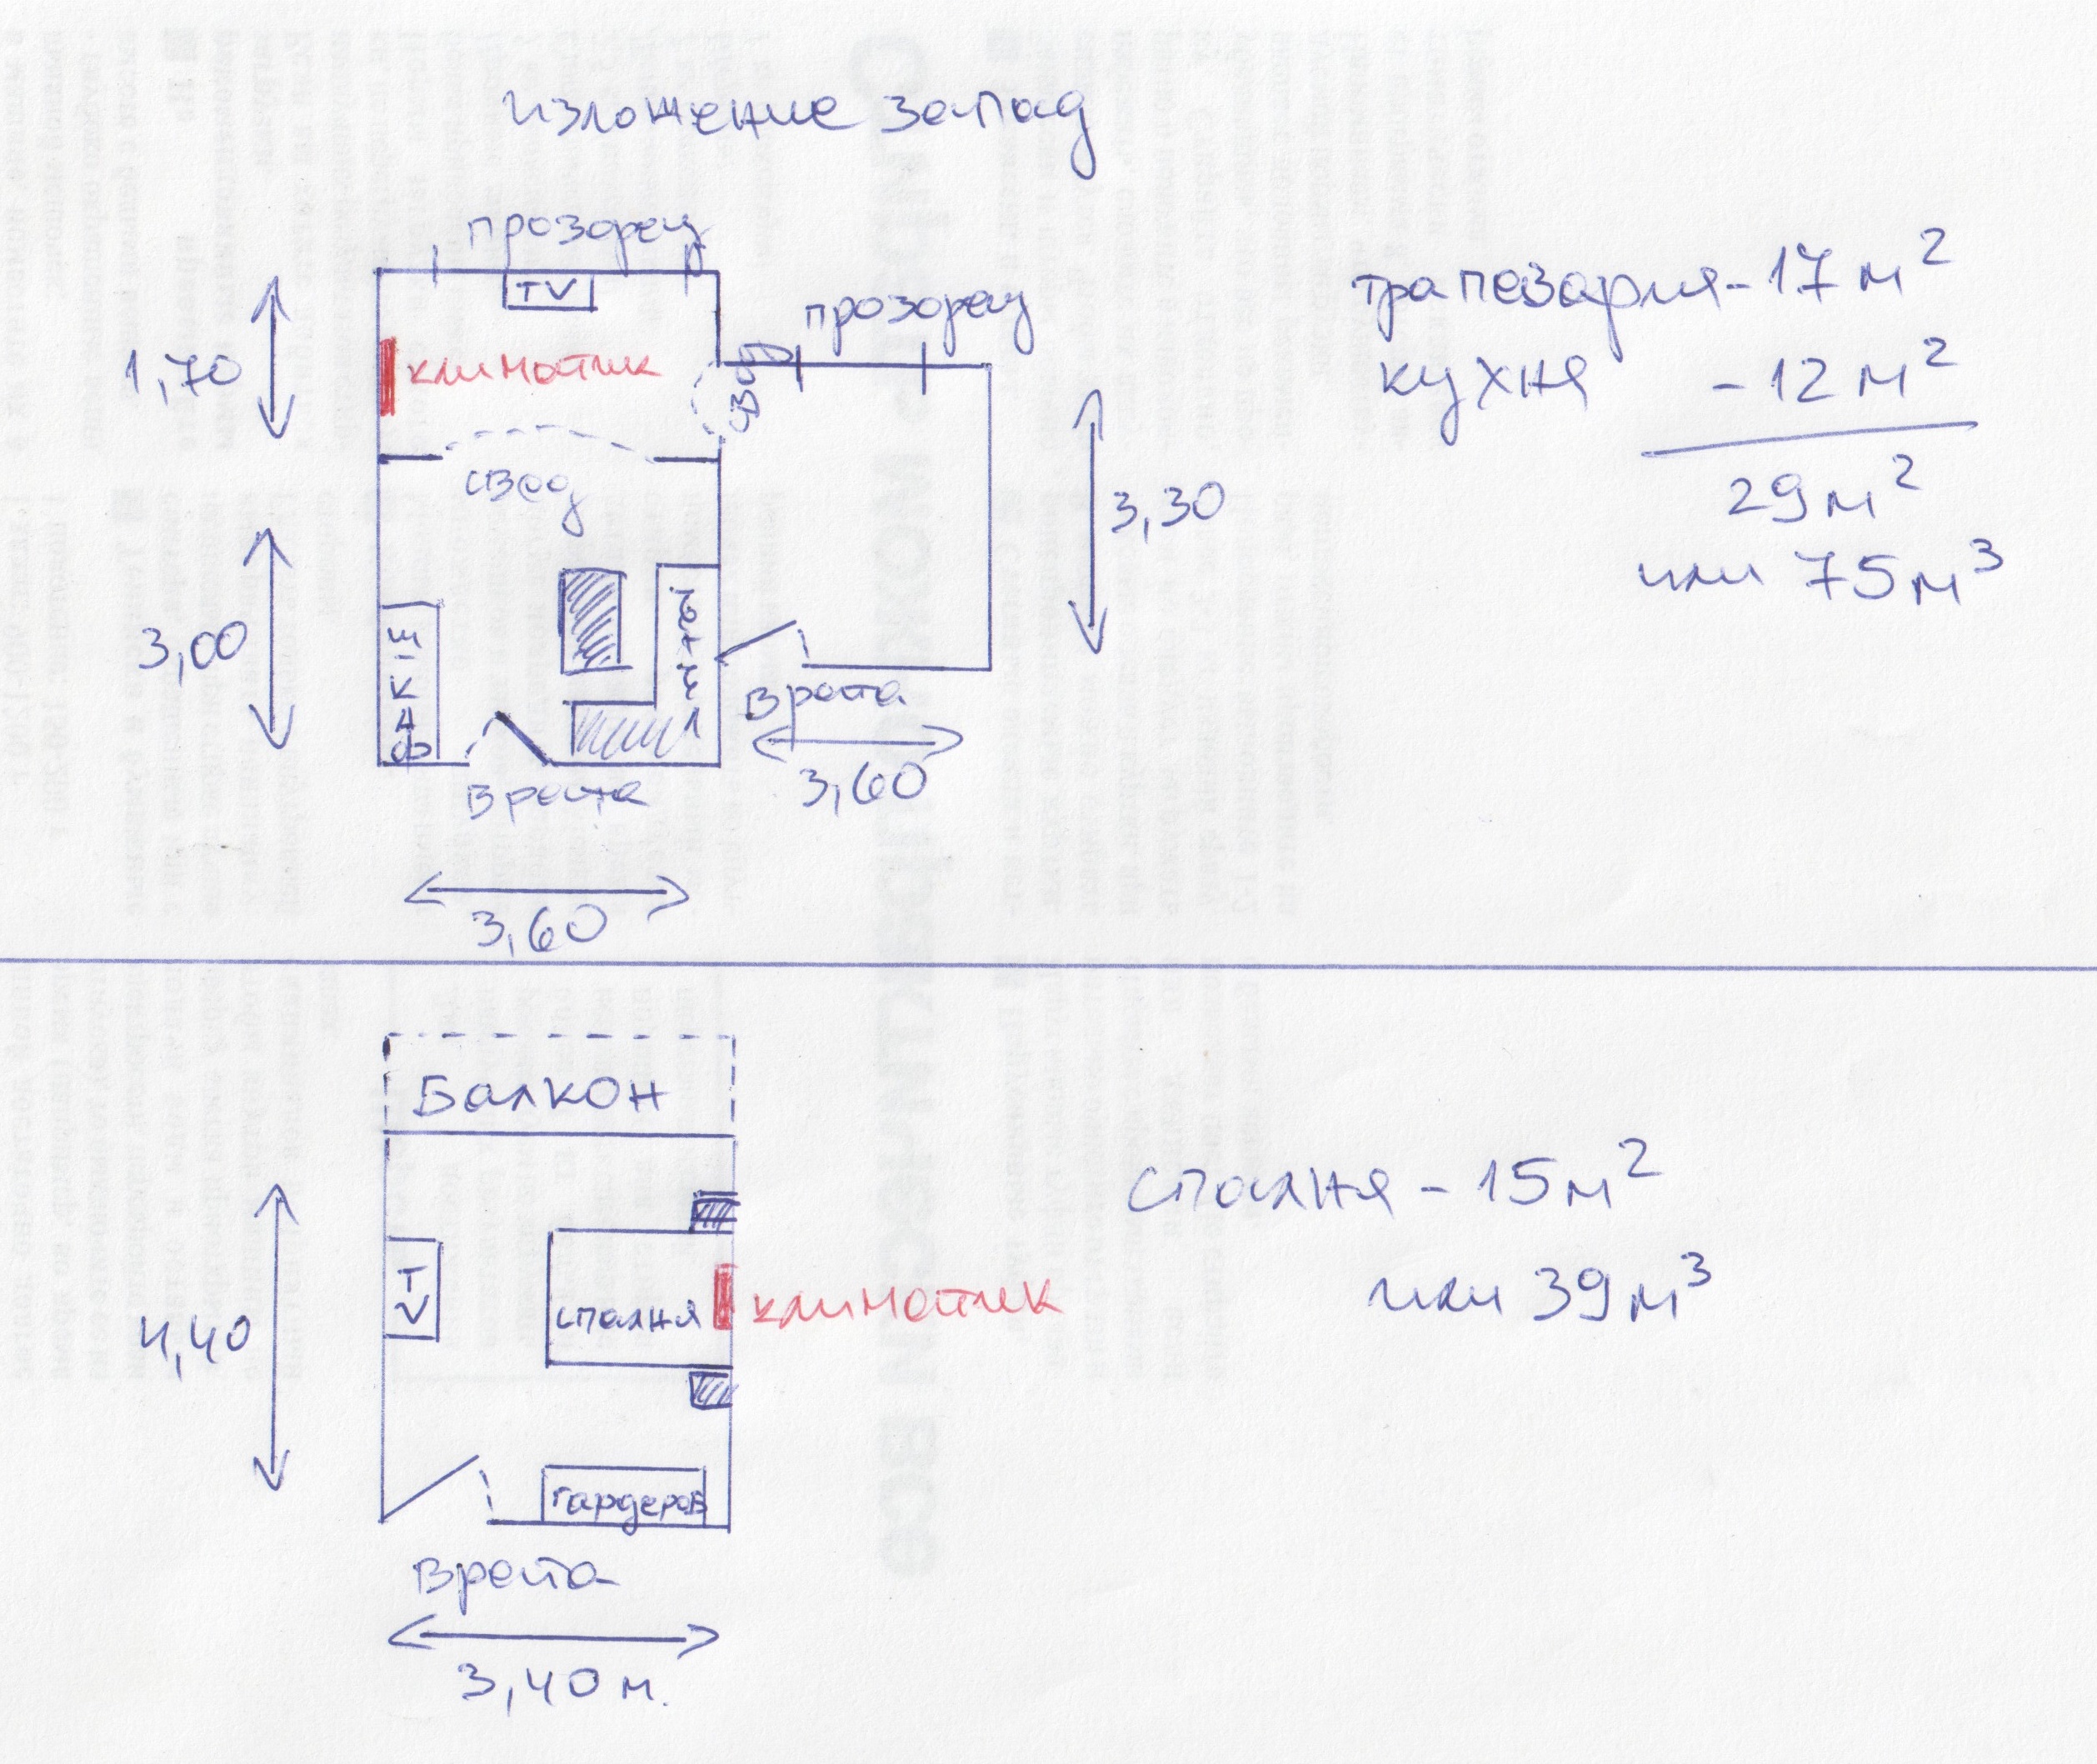 изложение запад
прозорец
TV
прозорец
1,70
климатик
свод
свод
3,30
3,00
шкаф
плот
врата
врата
3,60
3,60
трапезария - 17 м²
кухня - 12 м²
29 м²
или 75 м³
Балкон
4,40
TV
спалня
климатик
гардероб
врата
3,40 м.
спалня - 15 м²
или 39 м³